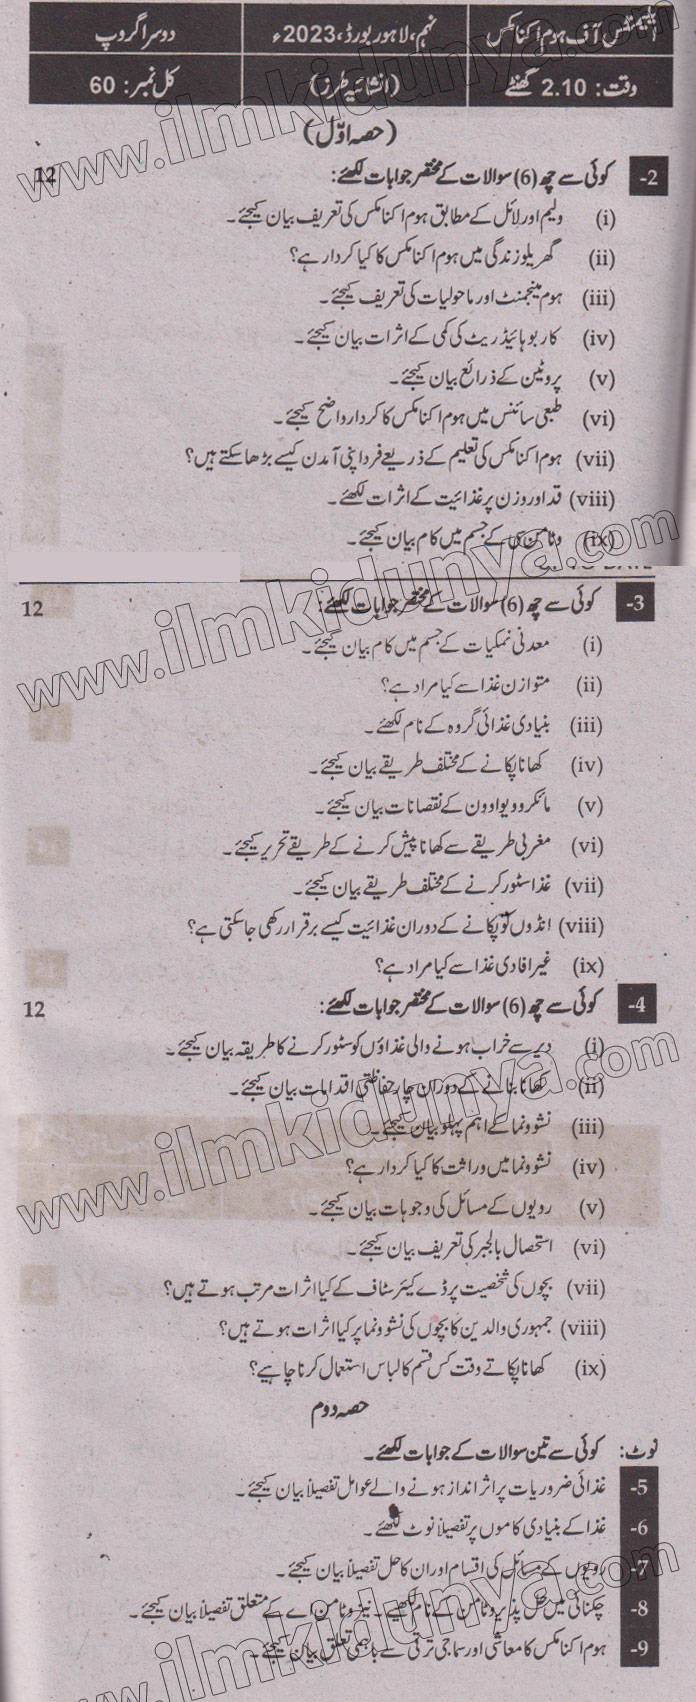 ایلیمنٹس آف ہوم اکنامکس نہم، لاہور بورڈ، 2023ء دوسرا گروپ
وقت: 2.10 گھنٹے (انشائیہ طرز) کل نمبر: 60
(حصہ اوّل)
2- کوئی سے چھ (6) سوالات کے مختصر جوابات لکھئے: 12
(i) ولیم اور لائل کے مطابق ہوم اکنامکس کی تعریف بیان کیجئے۔
(ii) گھریلو زندگی میں ہوم اکنامکس کا کیا کردار ہے؟
(iii) ہوم مینجمنٹ اور ماحولیات کی تعریف کیجئے۔
(iv) کاربوہائیڈریٹ کی کمی کے اثرات بیان کیجئے۔
(v) پروٹین کے ذرائع بیان کیجئے۔
(vi) طبعی سائنس میں ہوم اکنامکس کا کردار واضح کیجئے۔
(vii) ہوم اکنامکس کی تعلیم کے ذریعے فرد اپنی آمدن کیسے بڑھا سکتے ہیں؟
(viii) قد اور وزن پر غذائیت کے اثرات لکھئے۔
(ix) وٹامن سی کے جسم میں کام بیان کیجئے۔
3- کوئی سے چھ (6) سوالات کے مختصر جوابات لکھئے: 12
(i) معدنی نمکیات کے جسم میں کام بیان کیجئے۔
(ii) متوازن غذا سے کیا مراد ہے؟
(iii) بنیادی غذائی گروہ کے نام لکھئے۔
(iv) کھانا پکانے کے مختلف طریقے بیان کیجئے۔
(v) مائکرو ویو اوون کے نقصانات بیان کیجئے۔
(vi) مغربی طریقے سے کھانا پیش کرنے کے طریقے تحریر کیجئے۔
(vii) غذا سٹور کرنے کے مختلف طریقے بیان کیجئے۔
(viii) انڈوں کو پکانے کے دوران غذائیت کیسے برقرار رکھی جا سکتی ہے؟
(ix) غیر افادی غذا سے کیا مراد ہے؟
4- کوئی سے چھ (6) سوالات کے مختصر جوابات لکھئے: 12
(i) دیر سے خراب ہونے والی غذاؤں کو سٹور کرنے کا طریقہ بیان کیجئے۔
(ii) کھانا بنانے کے دوران چار حفاظتی اقدامات بیان کیجئے۔
(iii) نشوونما کے اہم پہلو بیان کیجئے۔
(iv) نشوونما میں وراثت کا کیا کردار ہے؟
(v) رویوں کے مسائل کی وجوہات بیان کیجئے۔
(vi) استحصال بالجبر کی تعریف بیان کیجئے۔
(vii) بچوں کی شخصیت پر ڈے کیئر سٹاف کے کیا اثرات مرتب ہوتے ہیں؟
(viii) جمہوری والدین کا بچوں کی نشوونما پر کیا اثرات ہوتے ہیں؟
(ix) کھانا پکاتے وقت کس قسم کا لباس استعمال کرنا چاہیے؟
حصہ دوم
نوٹ: کوئی سے تین سوالات کے جوابات لکھئے۔
5- غذائی ضروریات پر اثر انداز ہونے والے عوامل تفصیلاً بیان کیجئے۔
6- غذا کے بنیادی کاموں پر تفصیلاً نوٹ لکھئے۔
7- رویوں کے مسائل کی اقسام اور ان کا حل تفصیلاً بیان کیجئے۔
8- چکنائی میں حل پذیر وٹامن کے نام لکھیے۔ نیز وٹامن اے کے متعلق تفصیلاً بیان کیجئے۔
9- ہوم اکنامکس کا معاشی اور سماجی ترقی سے باہمی تعلق بیان کیجئے۔
www.ilmkidunya.com
www.ilmkidunya.com
www.ilmkidunya.com
www.ilmkidunya.com